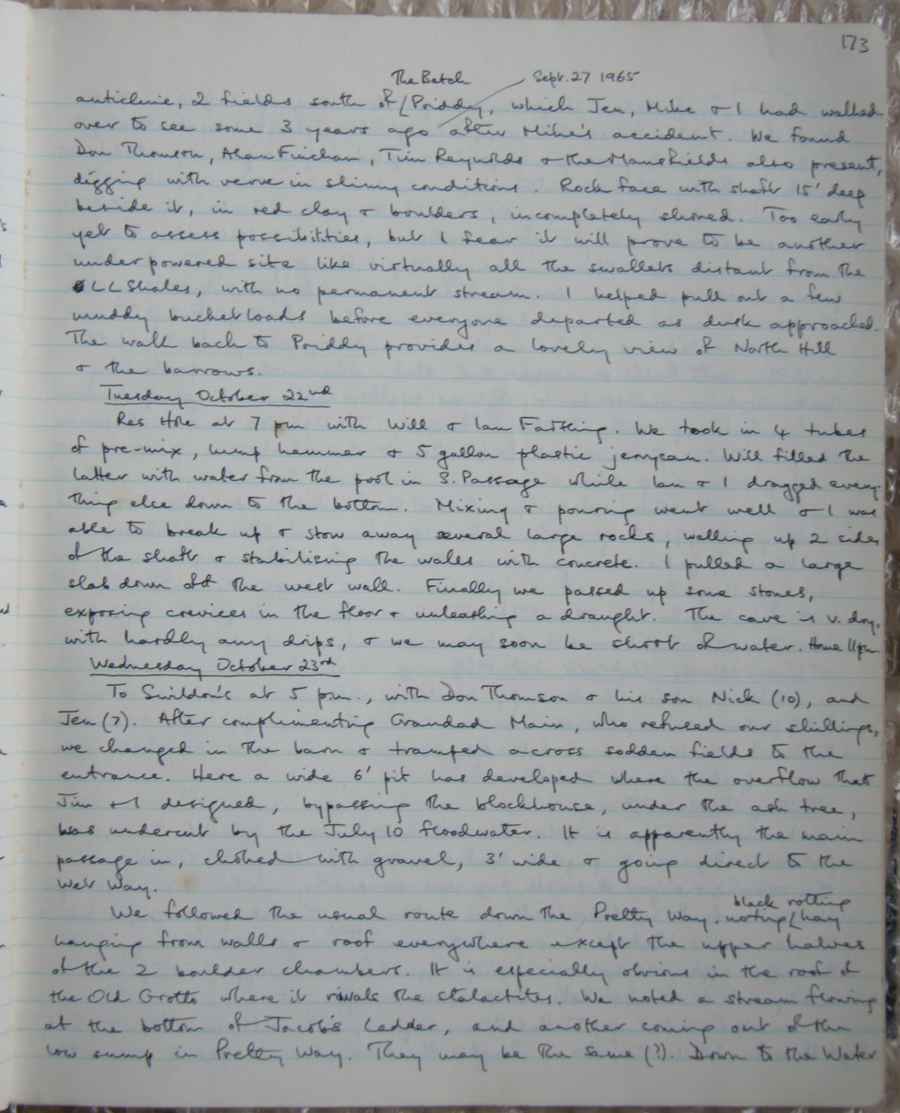 173
The Batch Sept. 27 1965
anticline, 2 fields south of Priddy, which Jen, Mike & I had walked
over to see some 3 years ago after Mike's accident. We found
Don Thomson, Alan Fincham, Tim Reynolds & the Mansfields also present,
digging with verve in slimy conditions. Rock face with shaft 15' deep
beside it, in red clay & boulders, incompletely shored. Too early
yet to assess possibilities, but I fear it will prove to be another
underpowered site like virtually all the swallets distant from the
LL Shales, with no permanent stream. I helped pull out a few
muddy bucketloads before everyone departed as dusk approached.
The walk back to Priddy provides a lovely view of North Hill
& the barrows.
Tuesday October 22nd
Res Hole at 7 pm with Will & Ian Farthing. We took in 4 tubes
of pre-mix, lump hammer & 5 gallon plastic jerrycan. Will filled the
latter with water from the pool in S. Passage while Ian & I dragged every-
thing else down to the bottom. Mixing & pouring went well & I was
able to break up & stow away several large rocks, walling up 2 sides
of the shaft & stabilising the walls with concrete. I pulled a large
slab down off the west wall. Finally we passed up some stones,
exposing crevices in the floor & unleashing a draught. The cave is v. dry,
with hardly any drips, & we may soon be short of water. Home 11pm
Wednesday October 23rd
To Swildon's at 5 pm., with Don Thomson & his son Nick (10), and
Jen (7). After complimenting Grandad Main, who refused our shillings,
we changed in the barn & tramped across sodden fields to the
entrance. Here a wide 6' pit has developed where the overflow that
Jim & I designed, bypassing the blockhouse, under the ash tree,
was undercut by the July 10 floodwater. It is apparently the main
passage in, choked with gravel, 3' wide & going direct to the
Wet Way.
black rotting
We followed the usual route down the Pretty Way. noting hay
hanging from walls & roof everywhere except the upper halves
of the 2 boulder chambers. It is especially obvious in the roof of
the Old Grotto where it rivals the stalactites. We noted a stream flowing
at the bottom of Jacob's Ladder, and another coming out of the
low sump in Pretty Way. They may be the same (?). Down to the Water